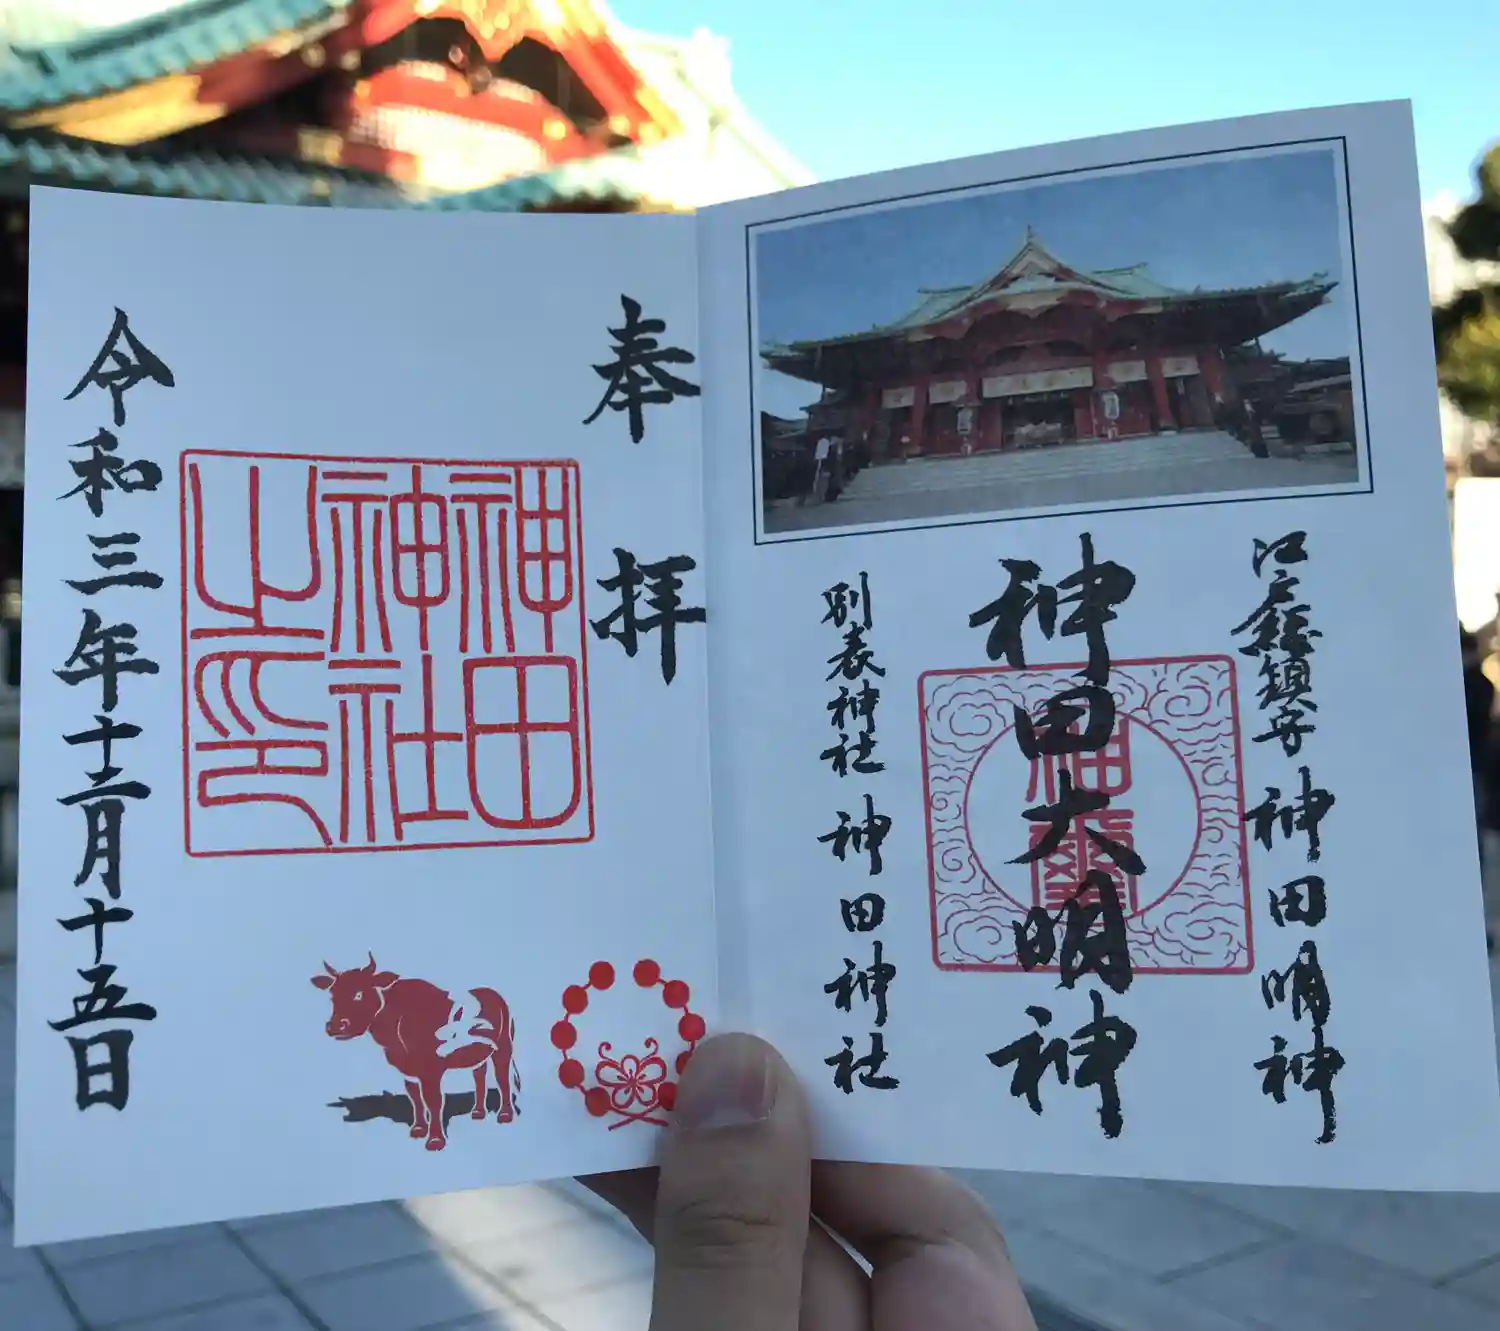 江戸總鎮守 神田明神
神田大明神
別表神社 神田神社
奉拝
神田
神社
之印
令和三年十二月十五日